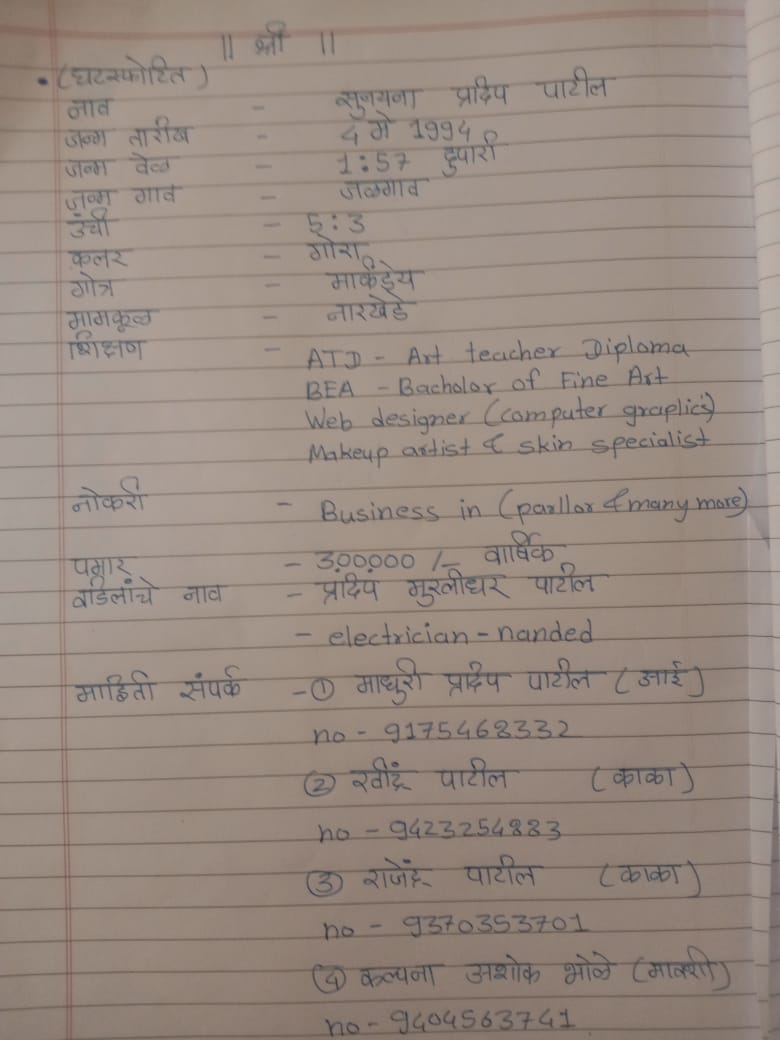 || श्री ||
• (घटस्फोटित)
नाव - सुनयना प्रदिप पाटील
जन्म तारीख - 4 मे 1994
जन्म वेळ - 1:57 दुपारी
जन्म गाव - जळगाव
उंची - 5:3
कलर - गोरा
गोत्र - मार्कंडेय
मामकूळ - नारखेडे
शिक्षण - ATD - Art teacher Diploma
BEA - Bacholar of Fine Art
Web designer (computer graplics)
Makeup artist & skin specialist
नोकरी - Business in (parllor & many more)
पगार - 3,00,000 /- वार्षिक
वडिलांचे नाव - प्रदिप मुरलीधर पाटील
- electrician - nanded
माहिती संपर्क - ① माधुरी प्रदिप पाटील (आई)
no - 9175468332
② रवींद्र पाटील (काका)
no - 9423254883
③ राजेंद्र पाटील (काका)
no - 9370353701
④ कल्पना अशोक भोळे (मावशी)
no - 9404563741